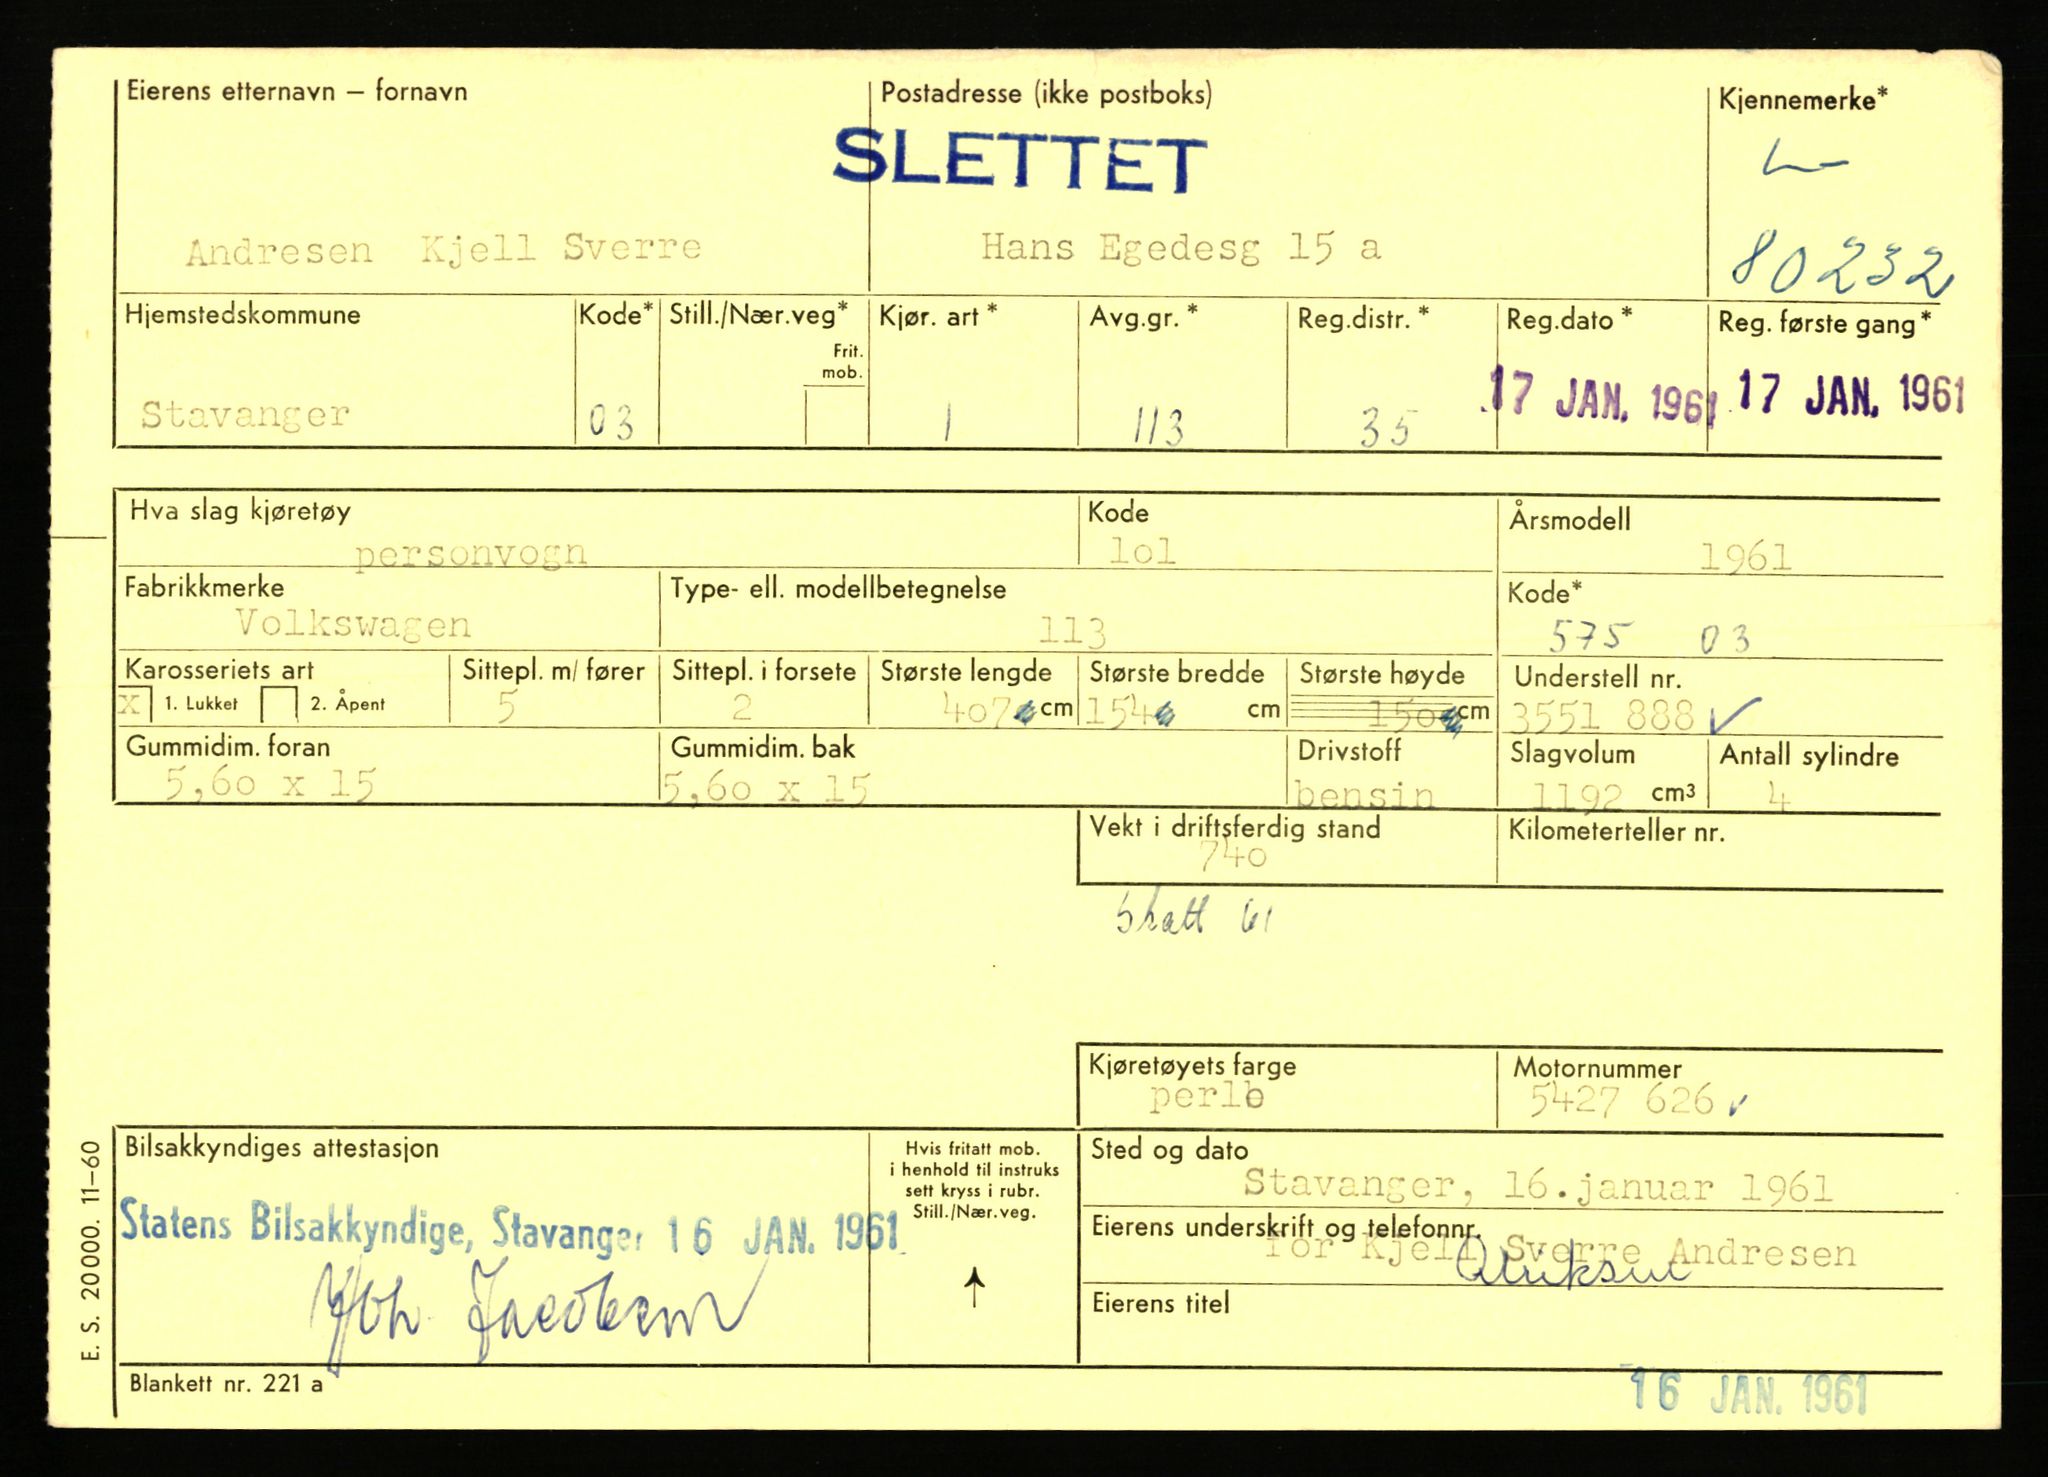 Eierens etternavn – fornavn Postadresse (ikke postboks) Kjennemerke*
SLETTET
L-
Andresen Kjell Sverre Hans Egedesg 15 a 80232
Hjemstedskommune Kode* Still./Nær.veg* Kjør. art * Avg.gr. * Reg.distr. * Reg.dato * Reg. første gang*
Frit.
mob.
Stavanger 03 1 113 35 17 JAN. 1961 17 JAN. 1961
Hva slag kjøretøy Kode Årsmodell
personvogn 101 1961
Fabrikkmerke Type- ell. modellbetegnelse Kode*
Volkswagen 113 575 03
Karosseriets art Sittepl. m/ fører Sittepl. i forsete Største lengde Største bredde Største høyde Understell nr.
X 1. Lukket 2. Åpent 5 2 407 cm 154 cm 150 cm 3551 888 ✓
Gummidim. foran Gummidim. bak Drivstoff Slagvolum Antall sylindre
5,60 x 15 5,60 x 15 bensin 1192 cm³ 4
Vekt i driftsferdig stand Kilometerteller nr.
740
Skatt 61
Kjøretøyets farge Motornummer
5427 626 ✓
Bilsakkyndiges attestasjon Hvis fritatt mob. Sted og dato
i henhold til instruks
sett kryss i rubr. Stavanger, 16.januar 1961
Still./Nær.veg.
Statens Bilsakkyndige, Stavanger 16 JAN. 1961 Eierens underskrift og telefonnr.
for Kjell Sverre Andresen
Joh Jacobsen
Eierens titel
E. S. 20000. 11–60
Blankett nr. 221 a 16 JAN. 1961